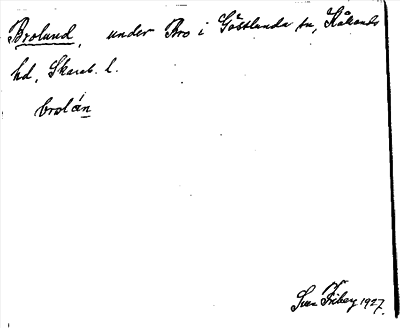 Brolund, under Bro i Götlunda sn, Kåkinds
hd, Skarab. l.
brolán
Sven Friberg 1927.